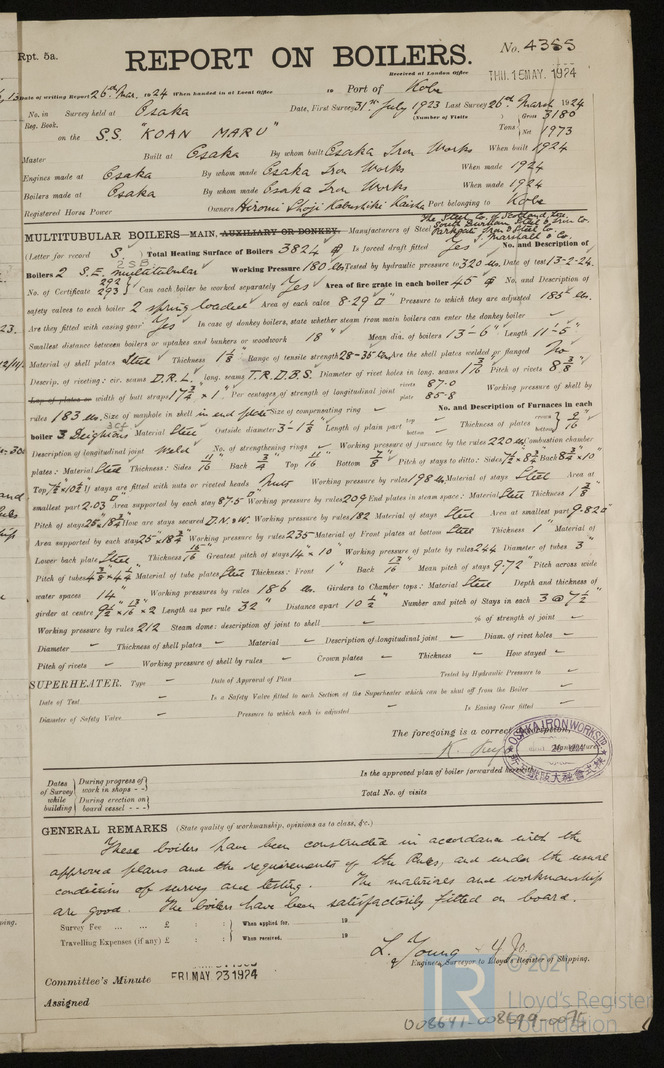 Rpt. 5a.
REPORT ON BOILERS.
No. 4355
Received at London Office
THU. 15 MAY. 1924
Date of writing Report 26th Mar. 1924 When handed in at Local Office 19 Port of Kobe
No. in Survey held at Osaka Date, First Survey 31st July 1923 Last Survey 26th March 1924
Reg. Book. (Number of Visits
on the S.S. "KOAN MARU" Tons Gross 3180 Net 1973
Master Built at Osaka By whom built Osaka Iron Works When built 1924
Engines made at Osaka By whom made Osaka Iron Works When made 1924
Boilers made at Osaka By whom made Osaka Iron Works When made 1924
Registered Horse Power Owners Hiromi Shoji Kabushiki Kaisha Port belonging to Kobe
MULTITUBULAR BOILERS—MAIN, AUXILIARY OR DONKEY.—Manufacturers of Steel The Steel Co. of Scotland, Ltd. South Durham Steel & Iron Co. Parkgate Iron & Steel Co. J. Marshall & Co.
(Letter for record S) Total Heating Surface of Boilers 3824 Is forced draft fitted Yes No. and Description of
Boilers 2 S.E. multitubular Working Pressure 180 lbs Tested by hydraulic pressure to 320 lbs. Date of test 13-2-24.
No. of Certificate 292 293 Can each boiler be worked separately Yes Area of fire grate in each boiler 45 No. and Description of
safety valves to each boiler 2 spring loaded Area of each valve 8.29 Pressure to which they are adjusted 185 lbs.
Are they fitted with easing gear Yes In case of donkey boilers, state whether steam from main boilers can enter the donkey boiler
Smallest distance between boilers or uptakes and bunkers or woodwork 18" Mean dia. of boilers 13'-6" Length 11'-5"
Material of shell plates Steel Thickness 1 1/8 Range of tensile strength 28-35 tons Are the shell plates welded or flanged No
Descrip. of riveting: cir. seams D.R.L. long. seams T.R.D.B.S. Diameter of rivet holes in long. seams 1 3/16 Pitch of rivets 8 3/8"
Lap of plates or width of butt straps 17 3/4 × 1" Per centages of strength of longitudinal joint rivets 87.0 plate 85.8 Working pressure of shell by
rules 183 lbs. Size of manhole in shell in end plate Size of compensating ring No. and Description of Furnaces in each
boiler 3 Deightons Material Steel Outside diameter 3'-1 1/2" Length of plain part top bottom Thickness of plates crown bottom 9/16
Description of longitudinal joint Weld No. of strengthening rings Working pressure of furnace by the rules 220 lbs. Combustion chamber
plates: Material Steel Thickness: Sides 11/16 Back 3/4 Top 11/16 Bottom 7/8 Pitch of stays to ditto: Sides 7 1/2 × 8 3/4 Back 8 3/4 × 10"
Top 7 1/2 × 10 1/2 If stays are fitted with nuts or riveted heads Nuts Working pressure by rules 198 lbs. Material of stays Steel Area at
smallest part 2.03 Area supported by each stay 87.5 Working pressure by rules 209 End plates in steam space: Material Steel Thickness 1 3/8
Pitch of stays 25 × 18 3/4 How are stays secured D.N.&W. Working pressure by rules 182 Material of stays Steel Area at smallest part 9.82
Area supported by each stay 25 × 18 3/4 Working pressure by rules 235 Material of Front plates at bottom Steel Thickness 1" Material of
Lower back plate Steel Thickness 15/16 Greatest pitch of stays 14" × 10" Working pressure of plate by rules 244 Diameter of tubes 3"
Pitch of tubes 4 3/8 × 4 1/4 Material of tube plates Steel Thickness: Front 1" Back 13/16 Mean pitch of stays 9.72" Pitch across wide
water spaces 14" Working pressures by rules 186 lbs. Girders to Chamber tops: Material Steel Depth and thickness of
girder at centre 9 1/2 × 13/16 × 2 Length as per rule 32" Distance apart 10 1/2" Number and pitch of Stays in each 3 @ 7 1/2"
Working pressure by rules 212 Steam dome: description of joint to shell % of strength of joint
Diameter Thickness of shell plates Material Description of longitudinal joint Diam. of rivet holes
Pitch of rivets Working pressure of shell by rules Crown plates Thickness How stayed
SUPERHEATER. Type Date of Approval of Plan Tested by Hydraulic Pressure to
Date of Test Is a Safety Valve fitted to each Section of the Superheater which can be shut off from the Boiler
Diameter of Safety Valve Pressure to which each is adjusted Is Easing Gear fitted
The foregoing is a correct description,
OSAKA IRON WORKS LTD
Manufacturer.
Dates of Survey while building During progress of work in shops - - During erection on board vessel - - -
Is the approved plan of boiler forwarded herewith
Total No. of visits
GENERAL REMARKS (State quality of workmanship, opinions as to class, &c.)
These boilers have been constructed in accordance with the
approved plans and the requirements of the Rules, and under the usual
condition of survey and testing. The materials and workmanship
are good. The boilers have been satisfactorily fitted on board.
Survey Fee ... ... £ : : When applied for, 19
Travelling Expenses (if any) £ : : When received, 19
L. Young
Engineer Surveyor to Lloyd's Register of Shipping.
Committee's Minute FRI. MAY 23 1924
Assigned
© 2021
Lloyd's Register
Foundation
008641-008699-0075